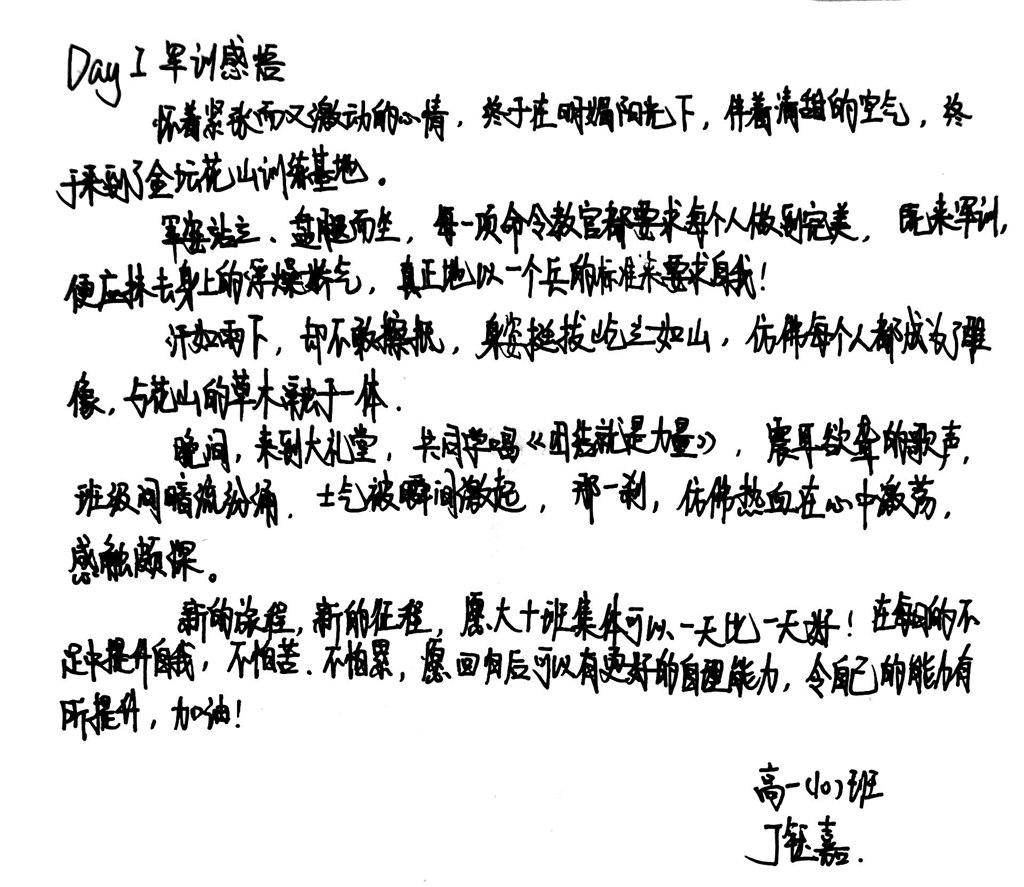 Day 1 军训感悟
怀着紧张而又激动的心情，终于在明媚阳光下，伴着清甜的空气，终
于来到了金坛花山训练基地。
军姿站立、盘腿而坐，每一项命令教官都要求每个人做到完美，既来军训，
便应抹去身上的浮燥娇气，真正地以一个兵的标准来要求自我！
汗如雨下，却不敢擦拭，身姿挺拔屹立如山，仿佛每个人都成为了雕
像，与花山的草木融于一体.
晚间，来到大礼堂，共同学唱《团结就是力量》，震耳欲聋的歌声，
班级间暗流纷涌．士气被瞬间激起，那一刹，仿佛热血在心中激荡，
感触颇深。
新的旅程，新的征程，愿大十班集体可以一天比一天好！在每日的不
足中提升自我，不怕苦．不怕累，愿回归后可以有更好的自理能力，令自己的能力有
所提升，加油！
高一(10)班
丁钰嘉.